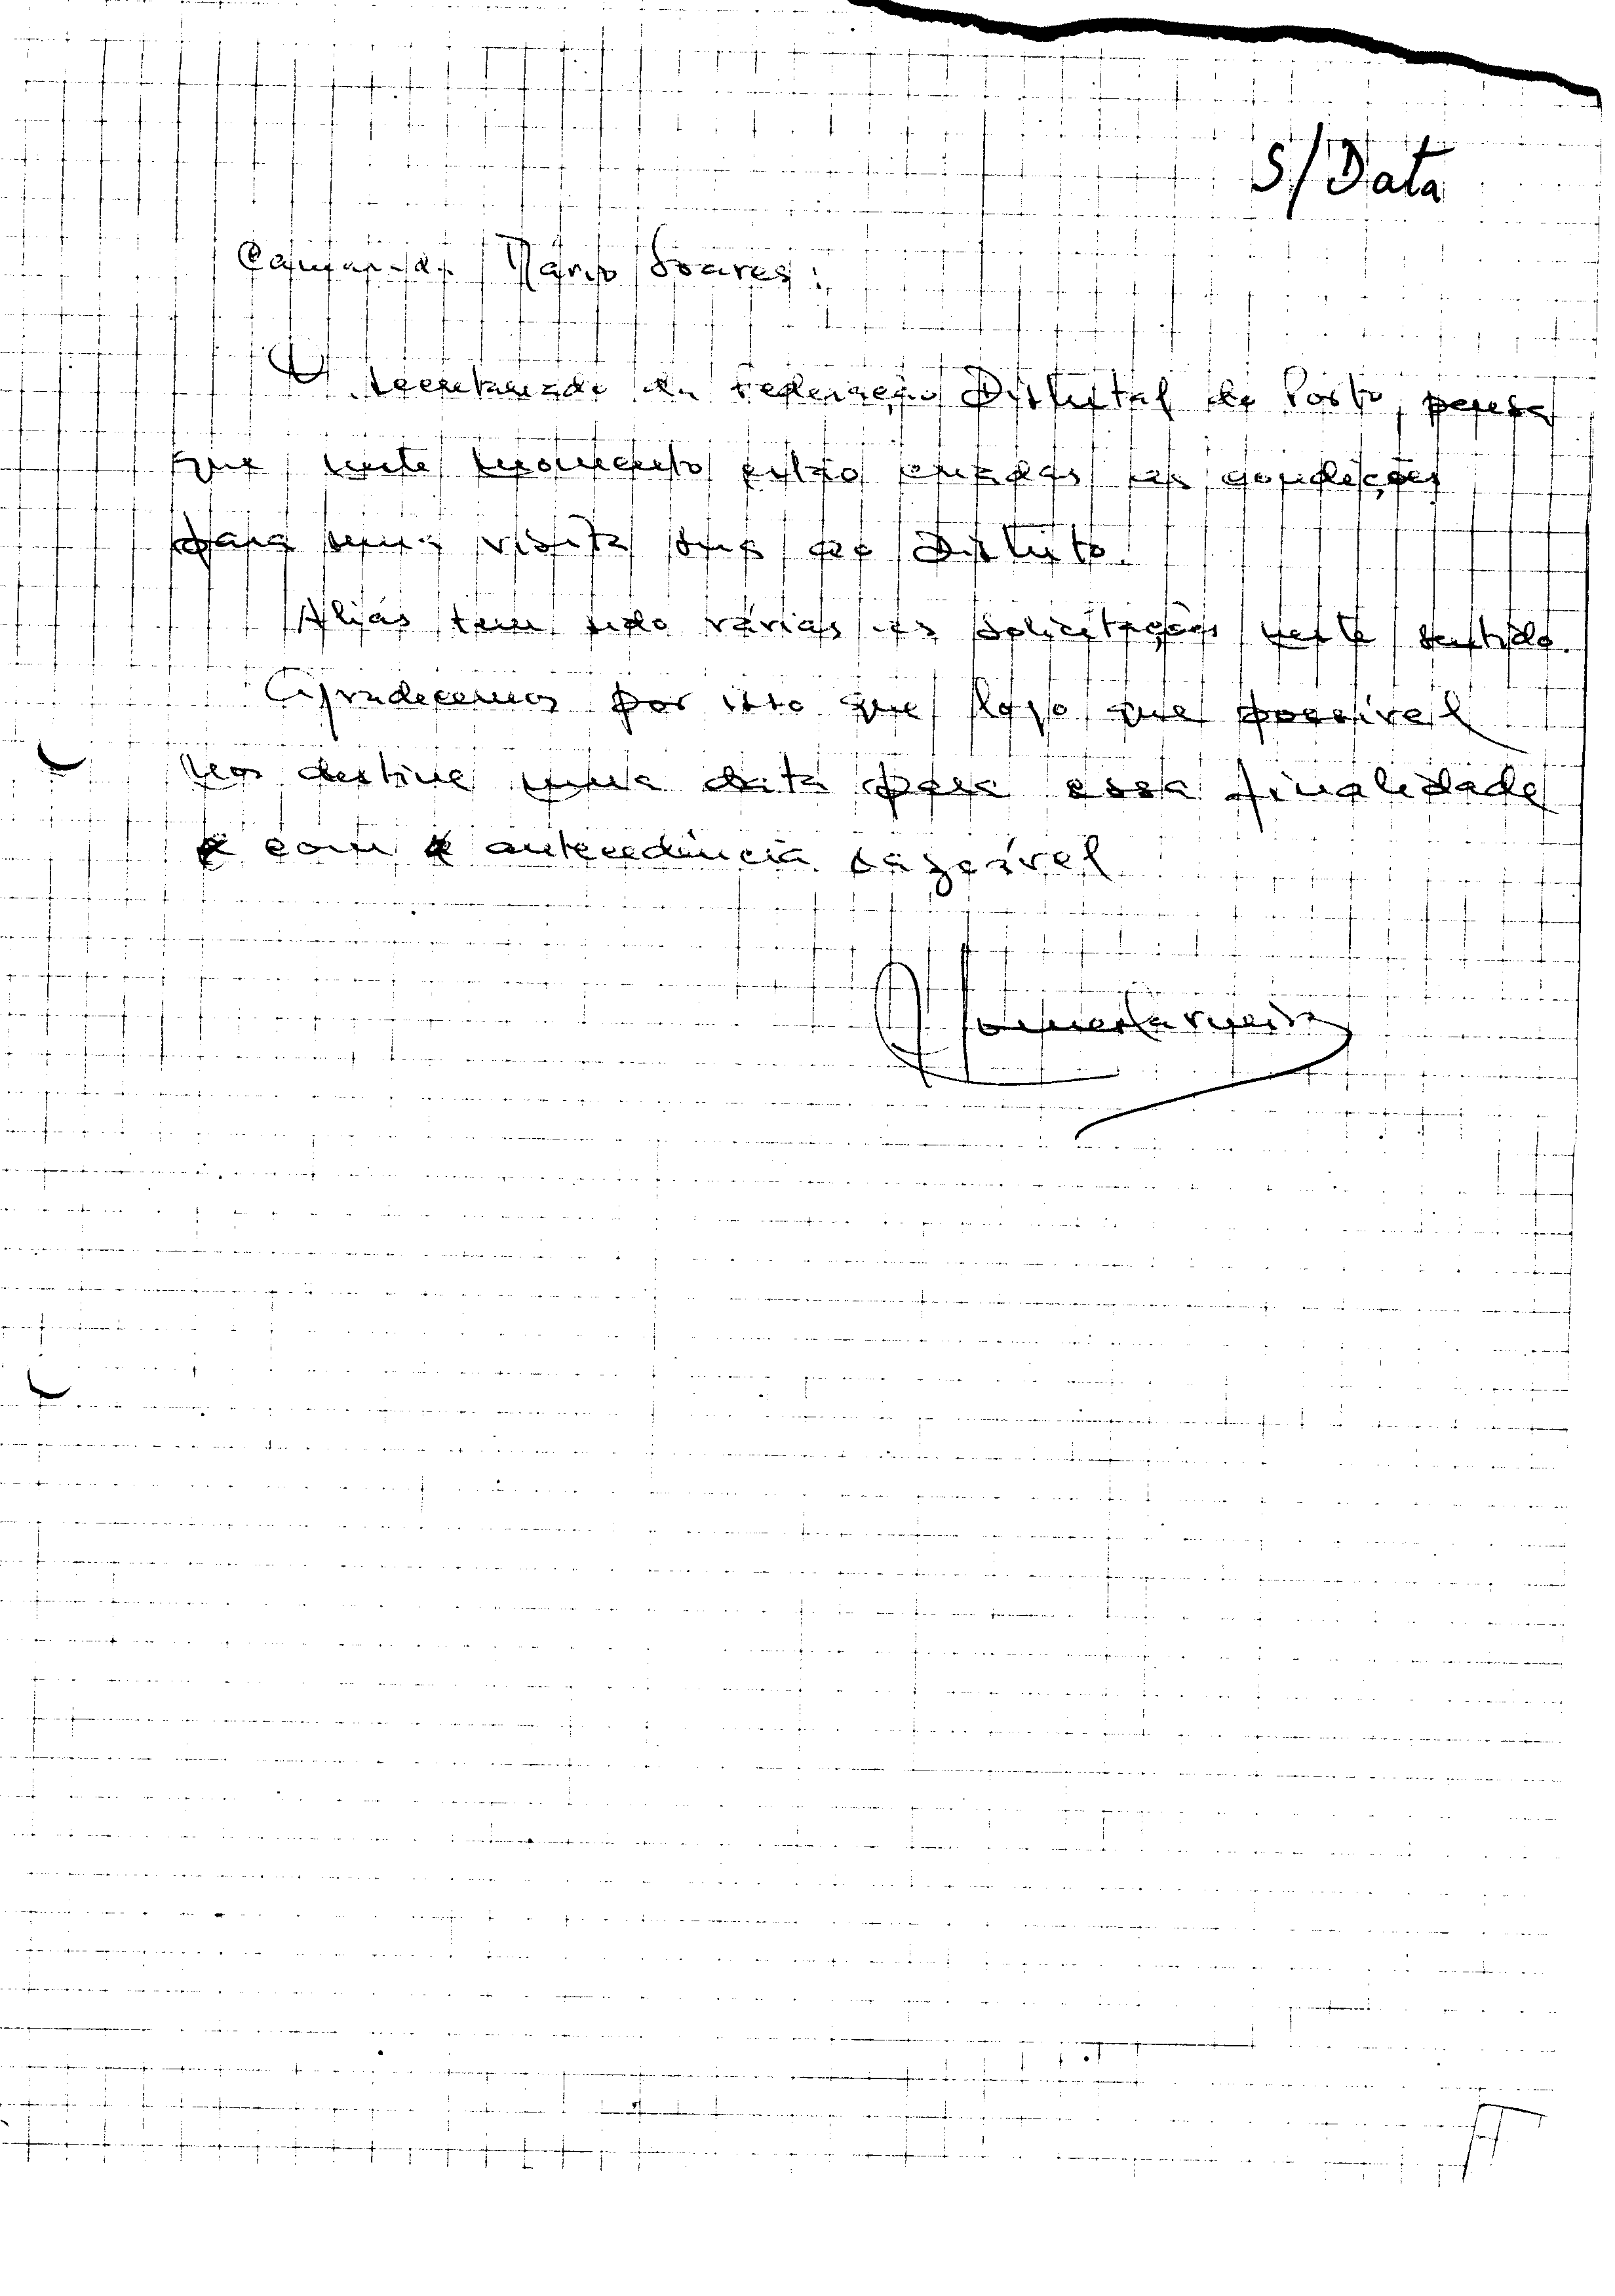 S/Data
Camarada Mário Soares:
O secretariado da Federação Distrital do Porto, pensa
que neste momento estão criadas as condições
para uma visita sua ao Distrito.
Aliás tem sido várias as solicitações neste sentido.
Agradecemos por isso que logo que possível
nos destine uma data para essa finalidade
e com a antecedência razoável